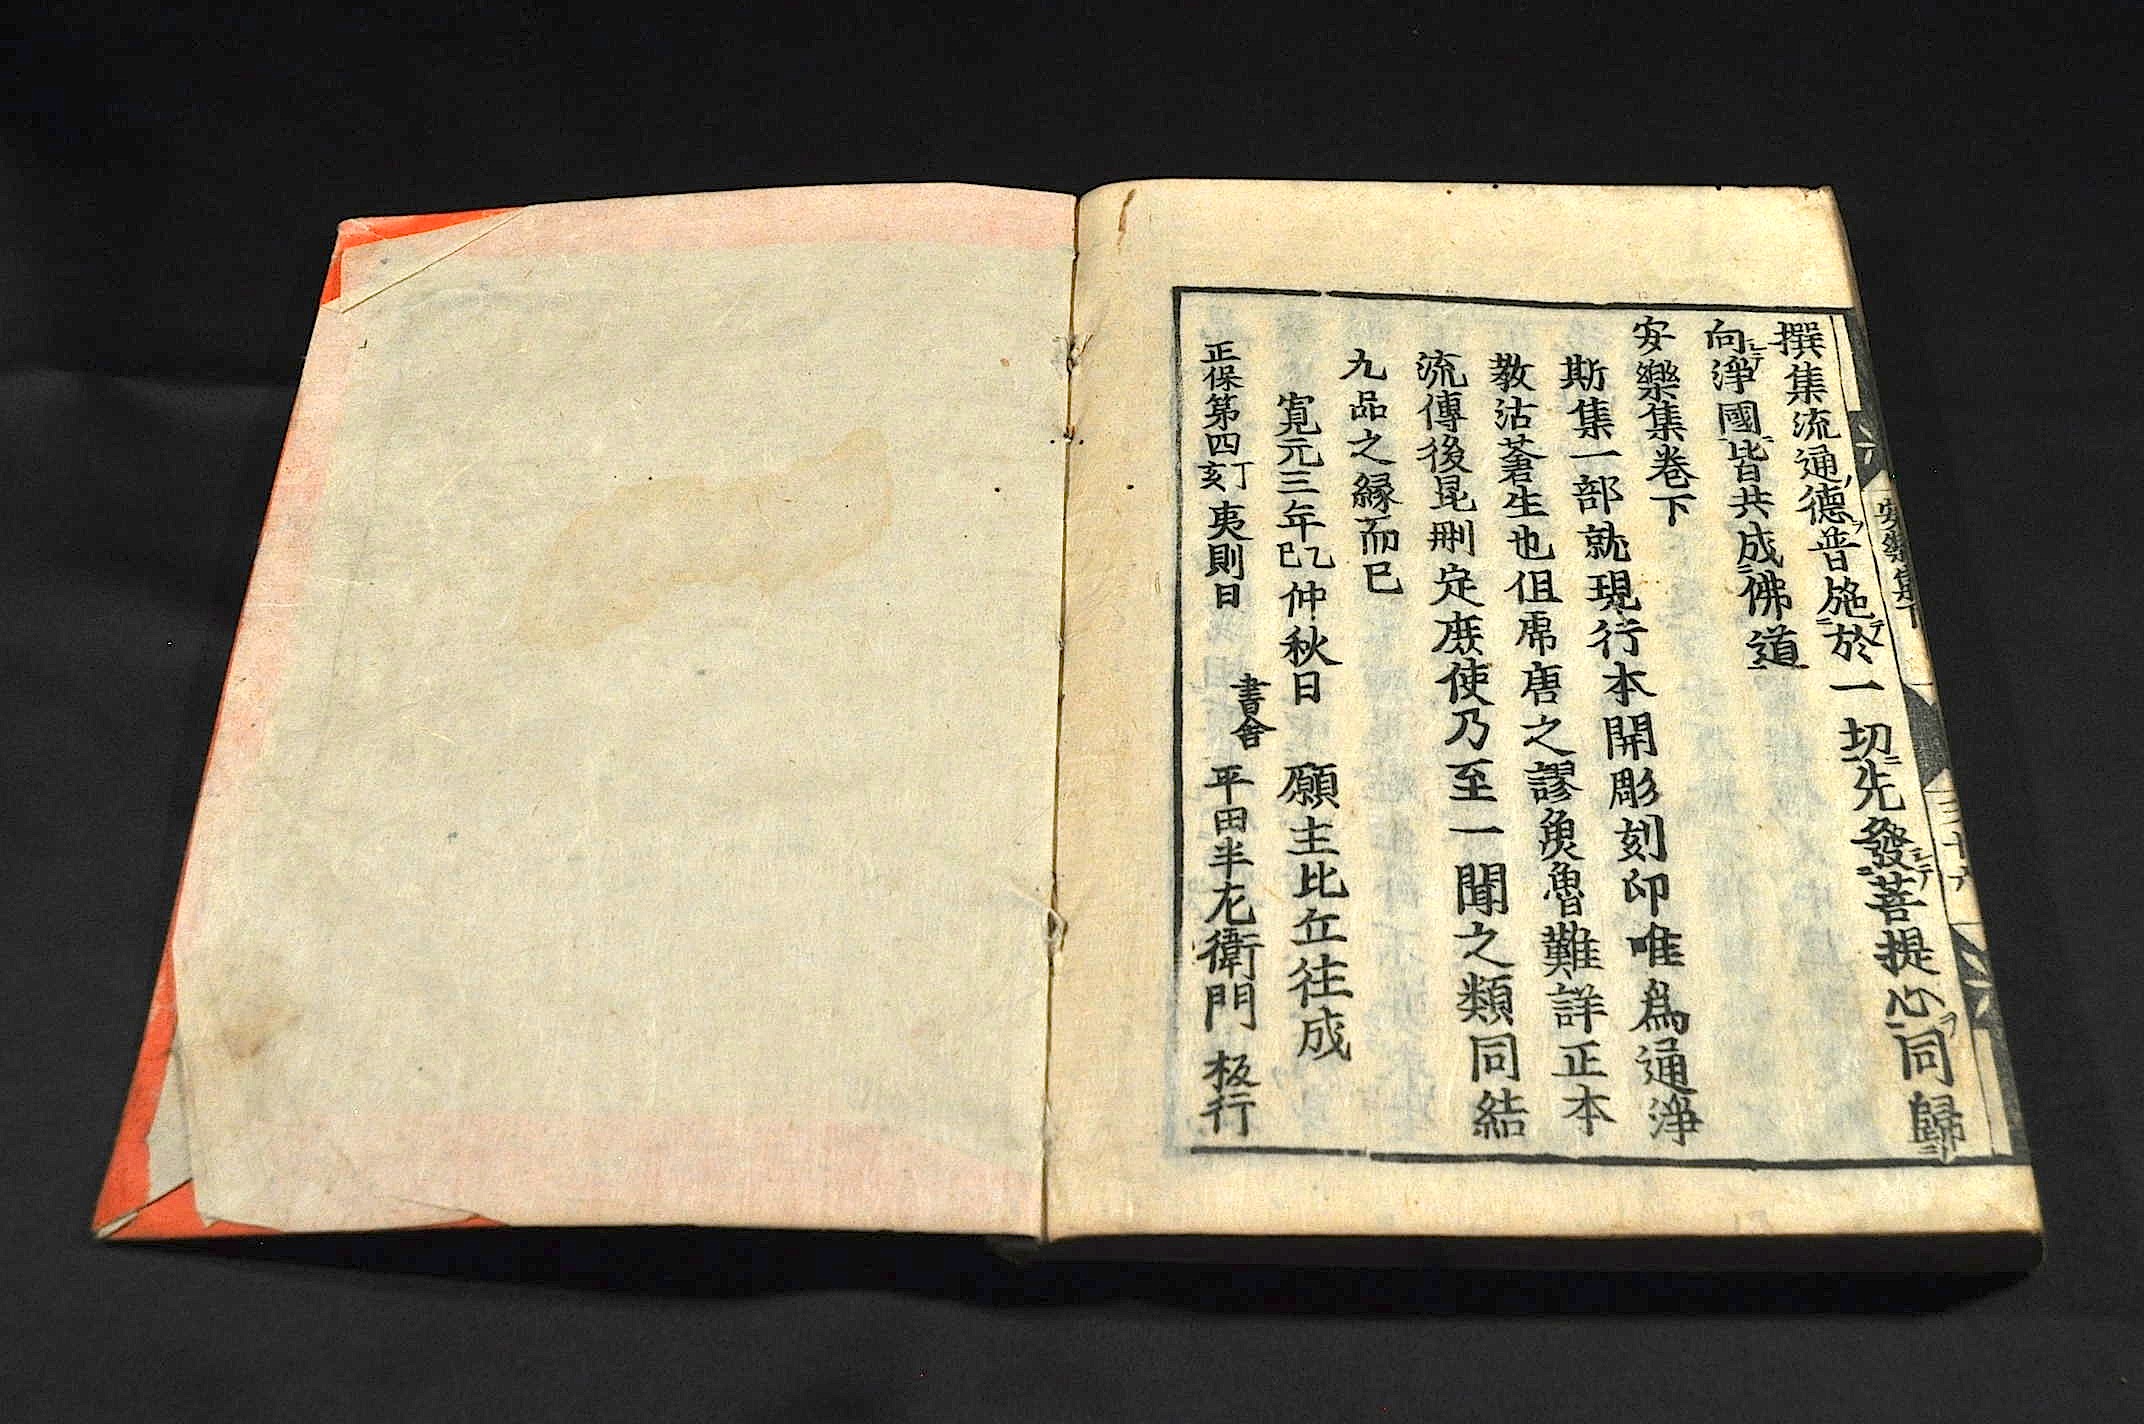 撰集流通德普施於一切先發菩提心同歸
向淨國皆共成佛道
安樂集卷下
斯集一部就現行本開彫刻印唯爲通淨
教沾蒼生也但帋唐之謬魚魯難詳正本
流傳後昆刪定庶使乃至一聞之類同結
九品之縁而已
寛元三年乙巳仲秋日 願主比丘往成
正保第四丁亥夷則日
書舍 平田半左衛門 板行
安樂集下
三十六